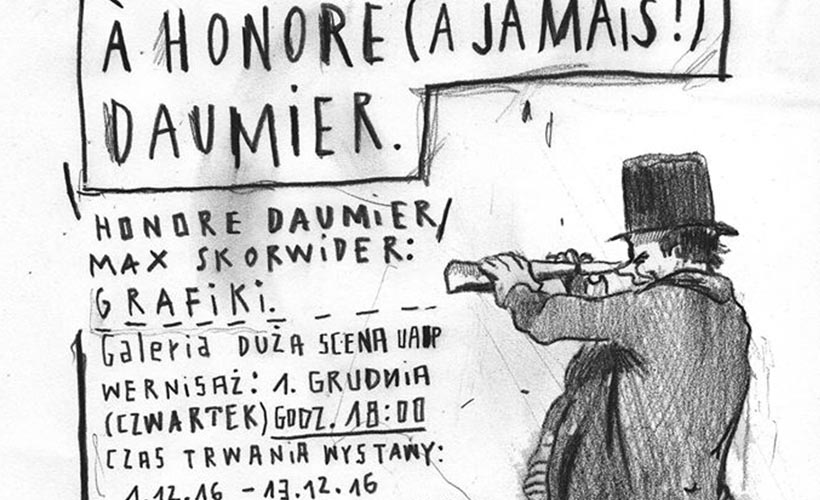 À HONORE (A JAMAiS!)
DAUMiER.
HONORE DAUMiER/
MAX SKORWiDER:
GRAFiKi.
Galeria DUŻA SCENA UAP
WERNiSAŻ: 1. GRUDNiA
(CZWARTEK) GODZ. 18:00
CZAS TRWANiA WYSTAWY:
1.12.16 - 13.12.16